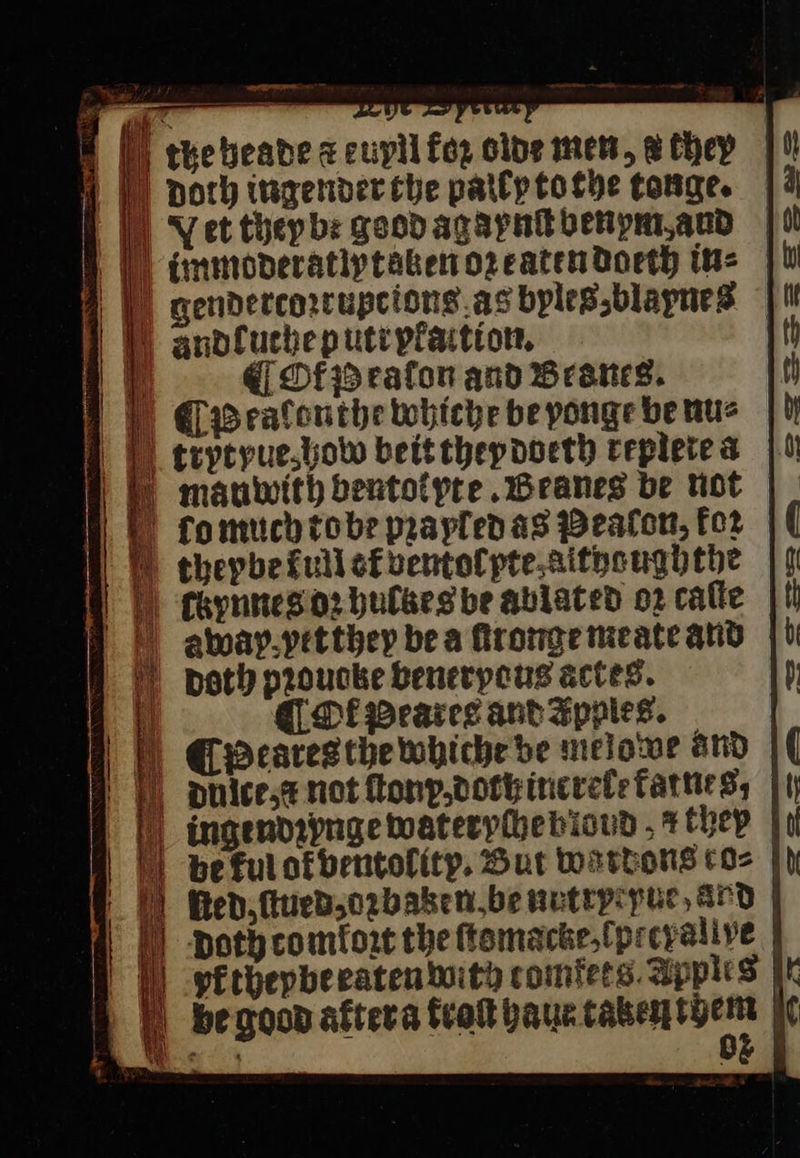 the heade & euyll for olde men, & they
doth ingender the palsy to the tonge.
Yet they be good agaynst venym, and
immoderatly taken or eaten doeth in=
gender corrupcions. as byles, blaynes
and suche putryfaction.
¶ Of Peason and Beanes.
¶ Peason the whiche be yonge be nu=
trytyue, how beit they doeth replete a
man with ventosyte. Beanes be not
so much to be praysed as Peason, for
they be full of ventosyte, although the
skynnes or huskes be ablated or caste
away. yet they be a stronge meate and
doth prouoke veneryous actes.
¶ Of Peares and Apples.
¶ Peares the whiche be melowe and
dulce, & not stony, doth increse fatnes,
ingendrynge waterysshe bloud, & they
be ful of ventosity. But wardons ro=
sted, stued, or baken, be nutrytyue, and
doth comfort the stomacke, specyallye
yf they be eaten with comfets. Apples
be good after a frost haue taken them
or